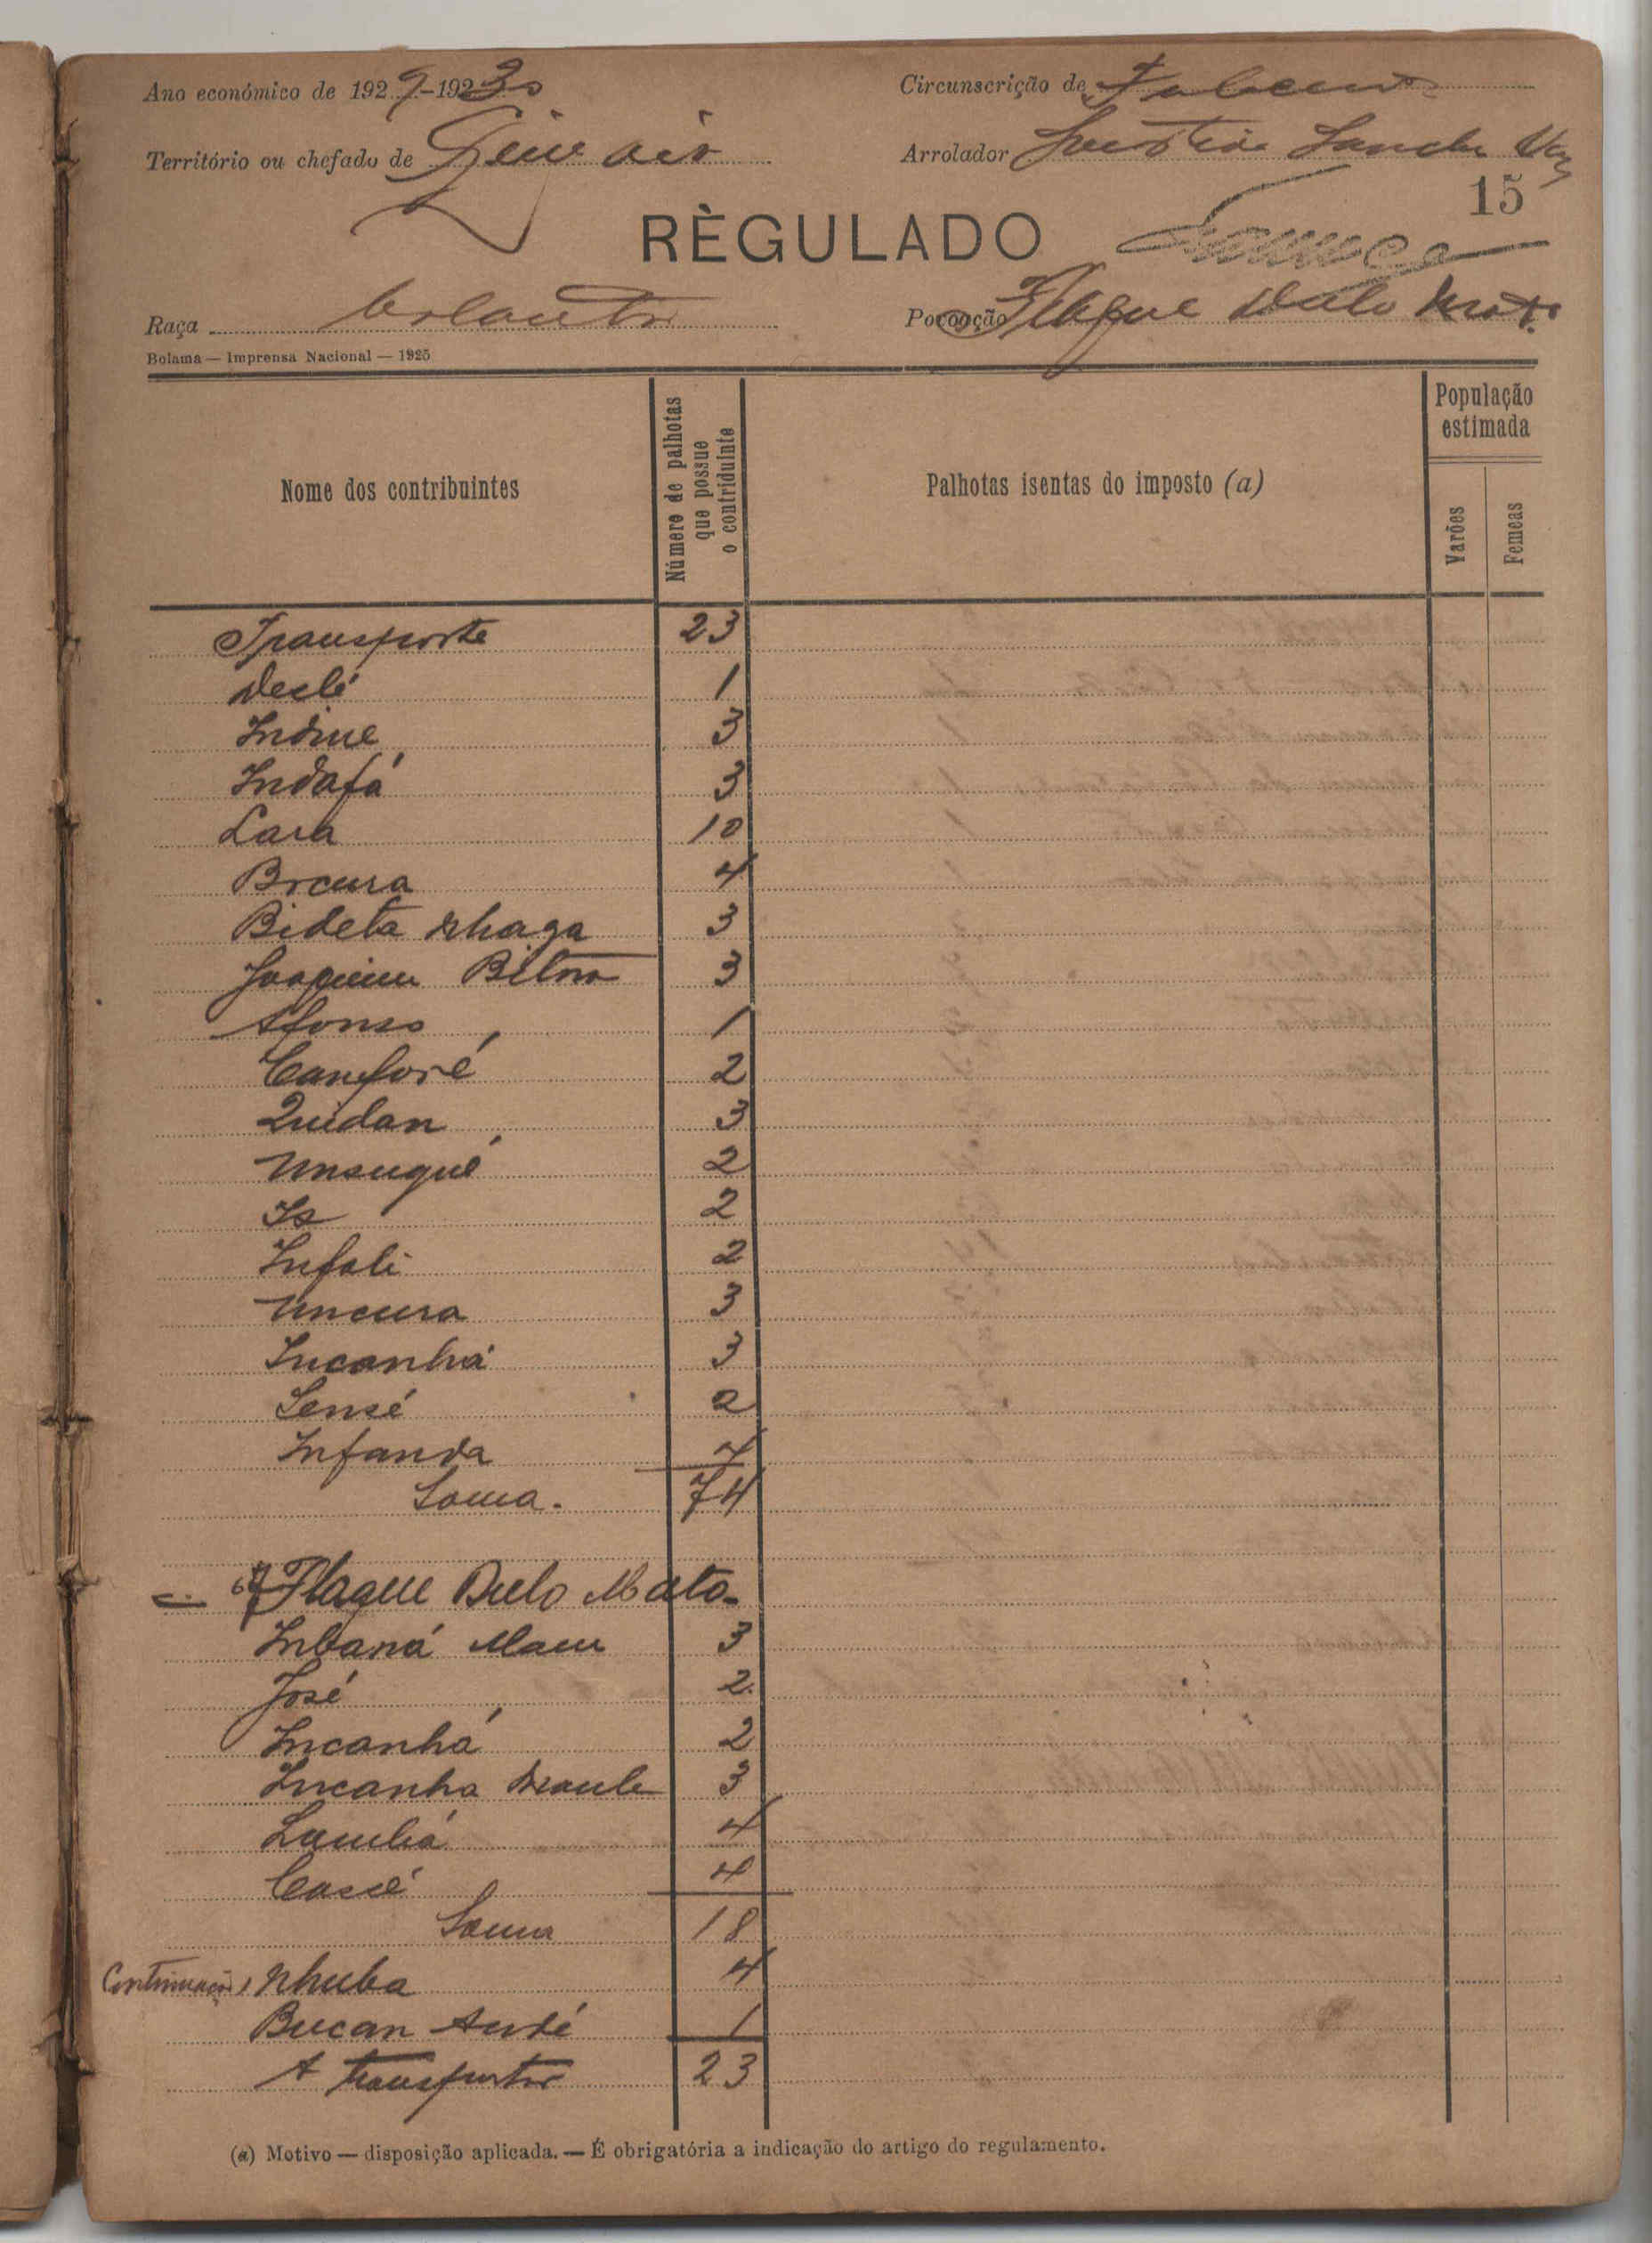 Ano económico de 1929-1930
Circunscrição de
Território ou chefado de
Arrolador
15
RÈGULADO
Raça
Povoação Flaque Dulo Mato
Bolama — Imprensa Nacional — 1925
Nome dos contribuintes
Número de palhotas que possue o contriduinte
Palhotas isentas do imposto (a)
População estimada
Varões
Femeas
Transporte 23
Deslé 1
Indine 3
Indafá 3
Lara 10
Brcura 4
Bideta Nhaga 3
Joaquim 3
Afonso 1
Canforé 2
Quidan 3
Unsugué 2
Is 2
Infali 2
Uncura 3
Incanhá 3
Sensé 2
Infanda 7
Soma. 74
Flaque Dulo Mato-
Inbaná Mam 3
José 2
Incanhá 2
Incanha 3
Lambá 4
Cassé 4
Soma 18
Continuação Nhuba 4
Bucan 1
A transportar 23
(a) Motivo — disposição aplicada. — É obrigatória a indicação do artigo do regulamento.